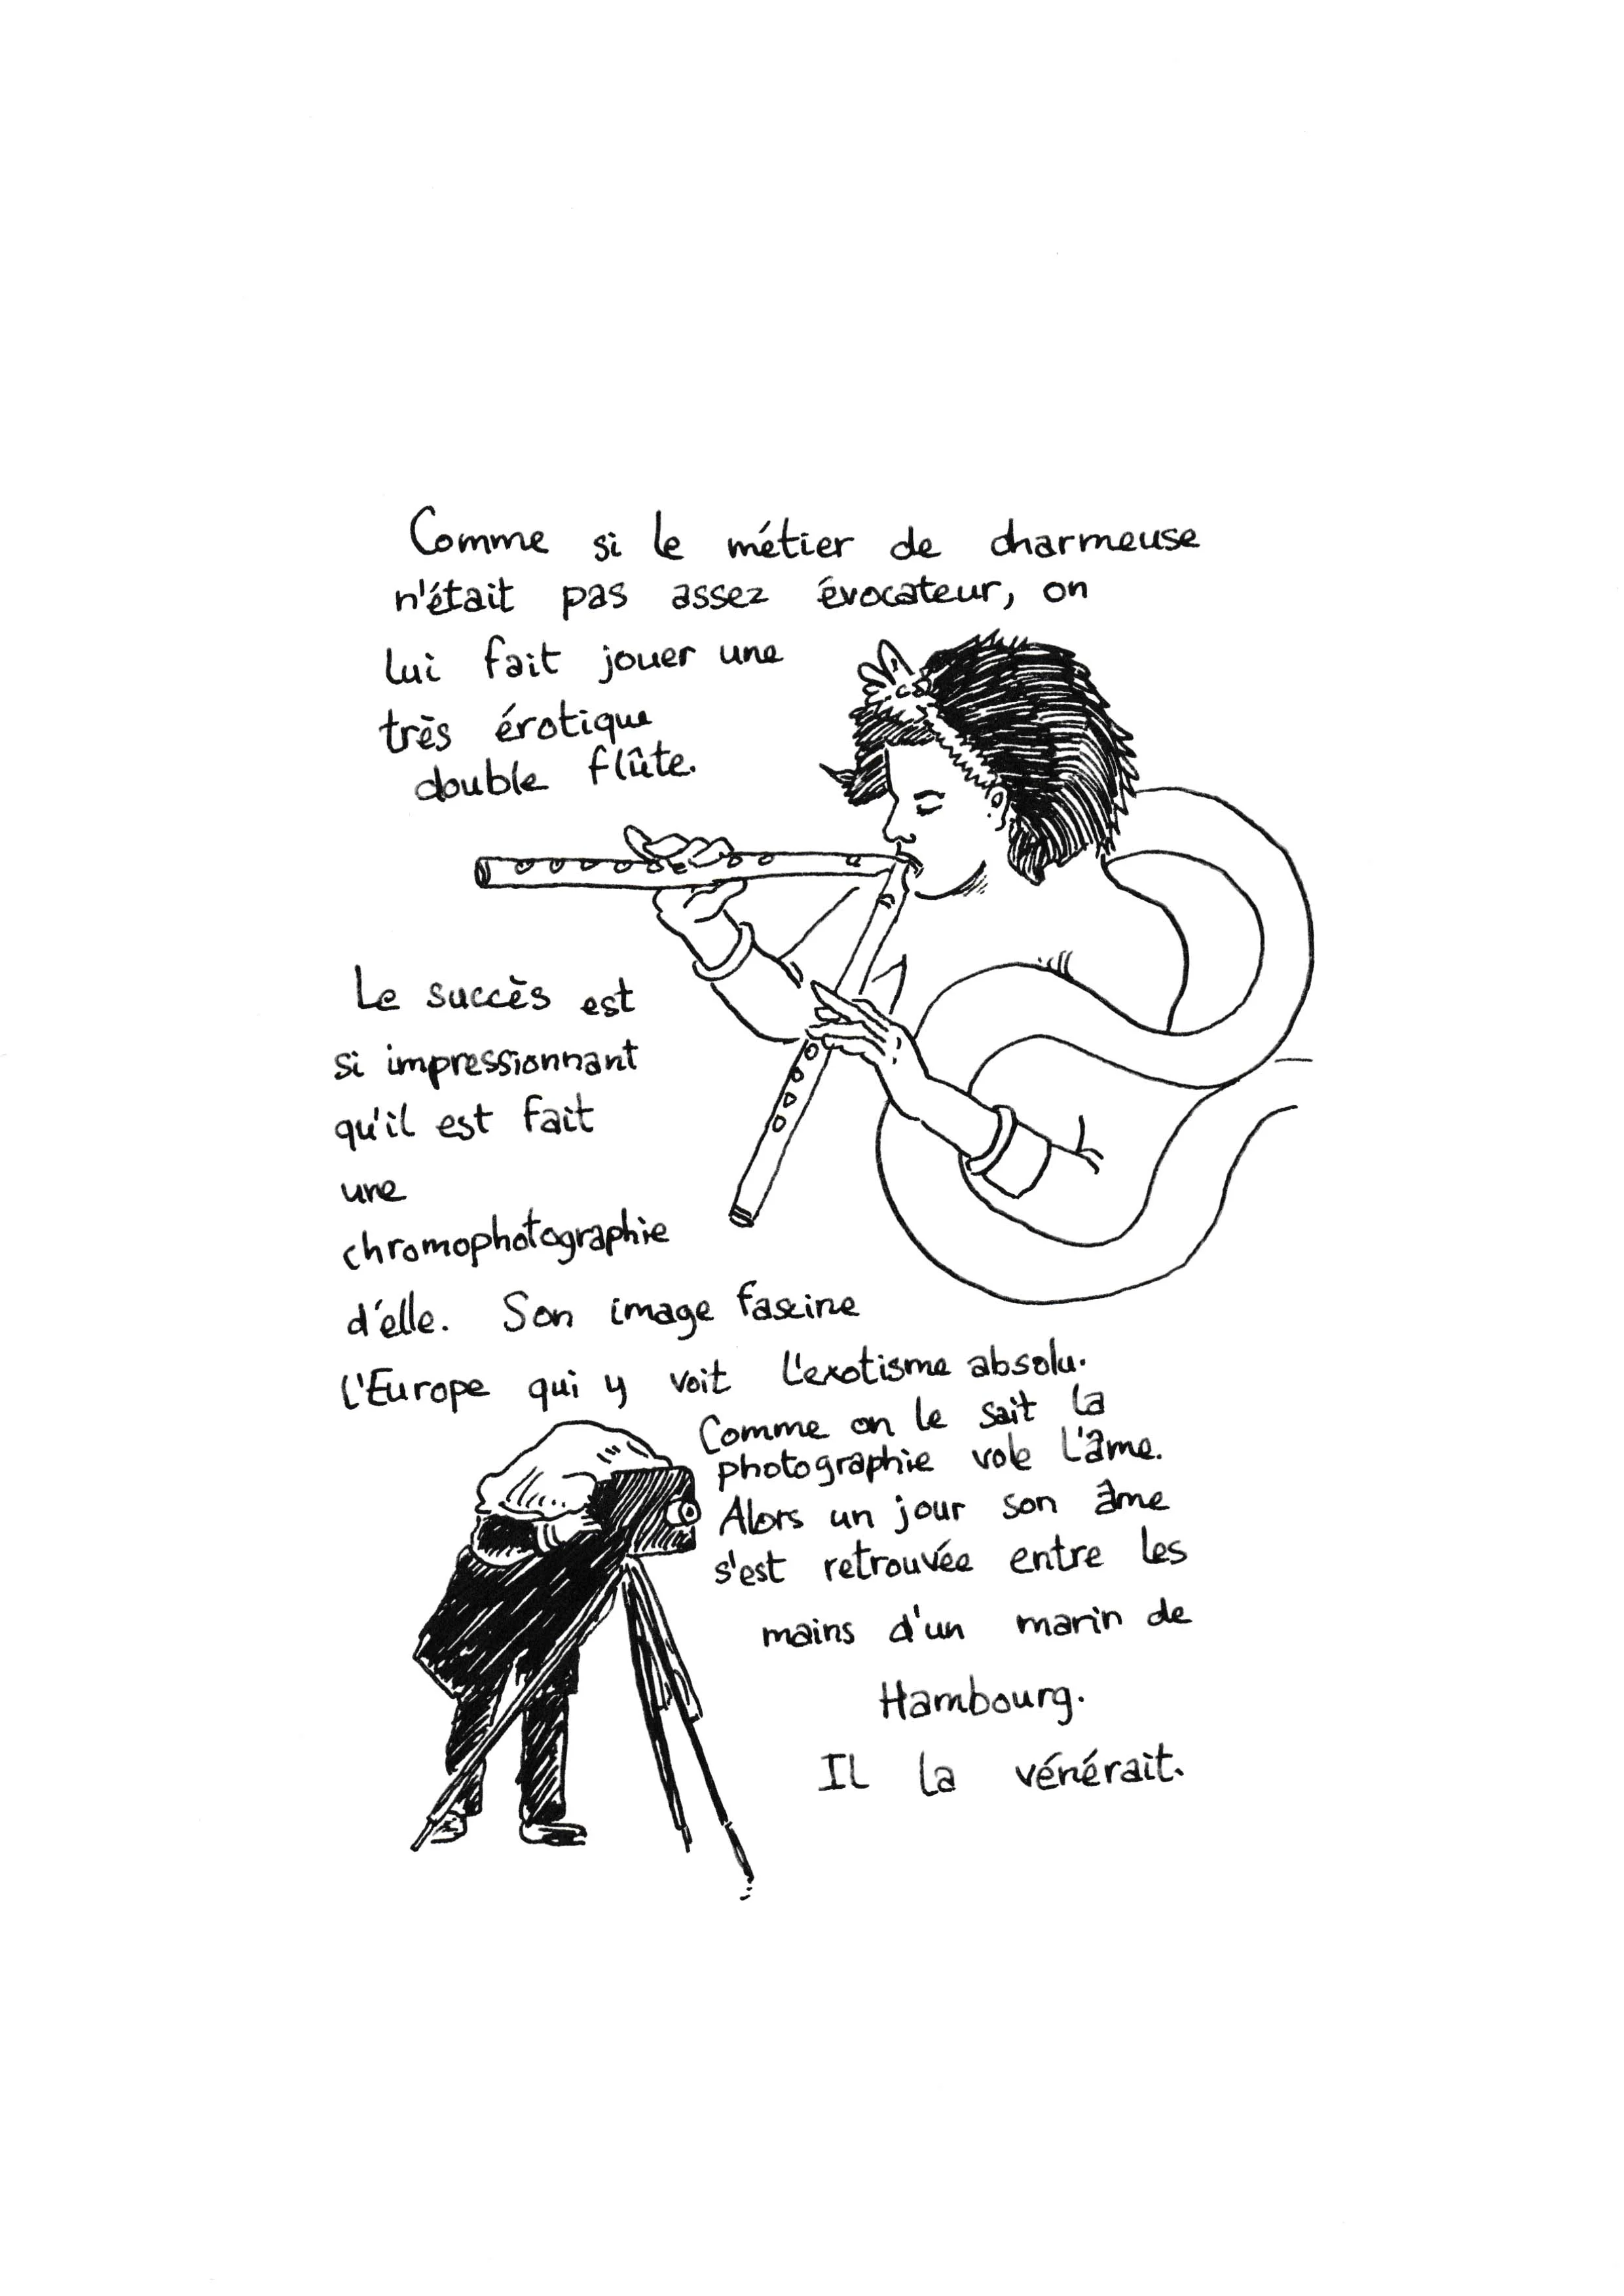 Comme si le métier de charmeuse
n'était pas assez évocateur, on
lui fait jouer une
très érotique
double flûte.
Le succès est
si impressionnant
qu'il est fait
une
chromophotographie
d'elle. Son image fascine
l'Europe qui y voit l'exotisme absolu.
Comme on le sait la
photographie vole l'âme.
Alors un jour son âme
s'est retrouvée entre les
mains d'un marin de
Hambourg.
Il la vénérait.